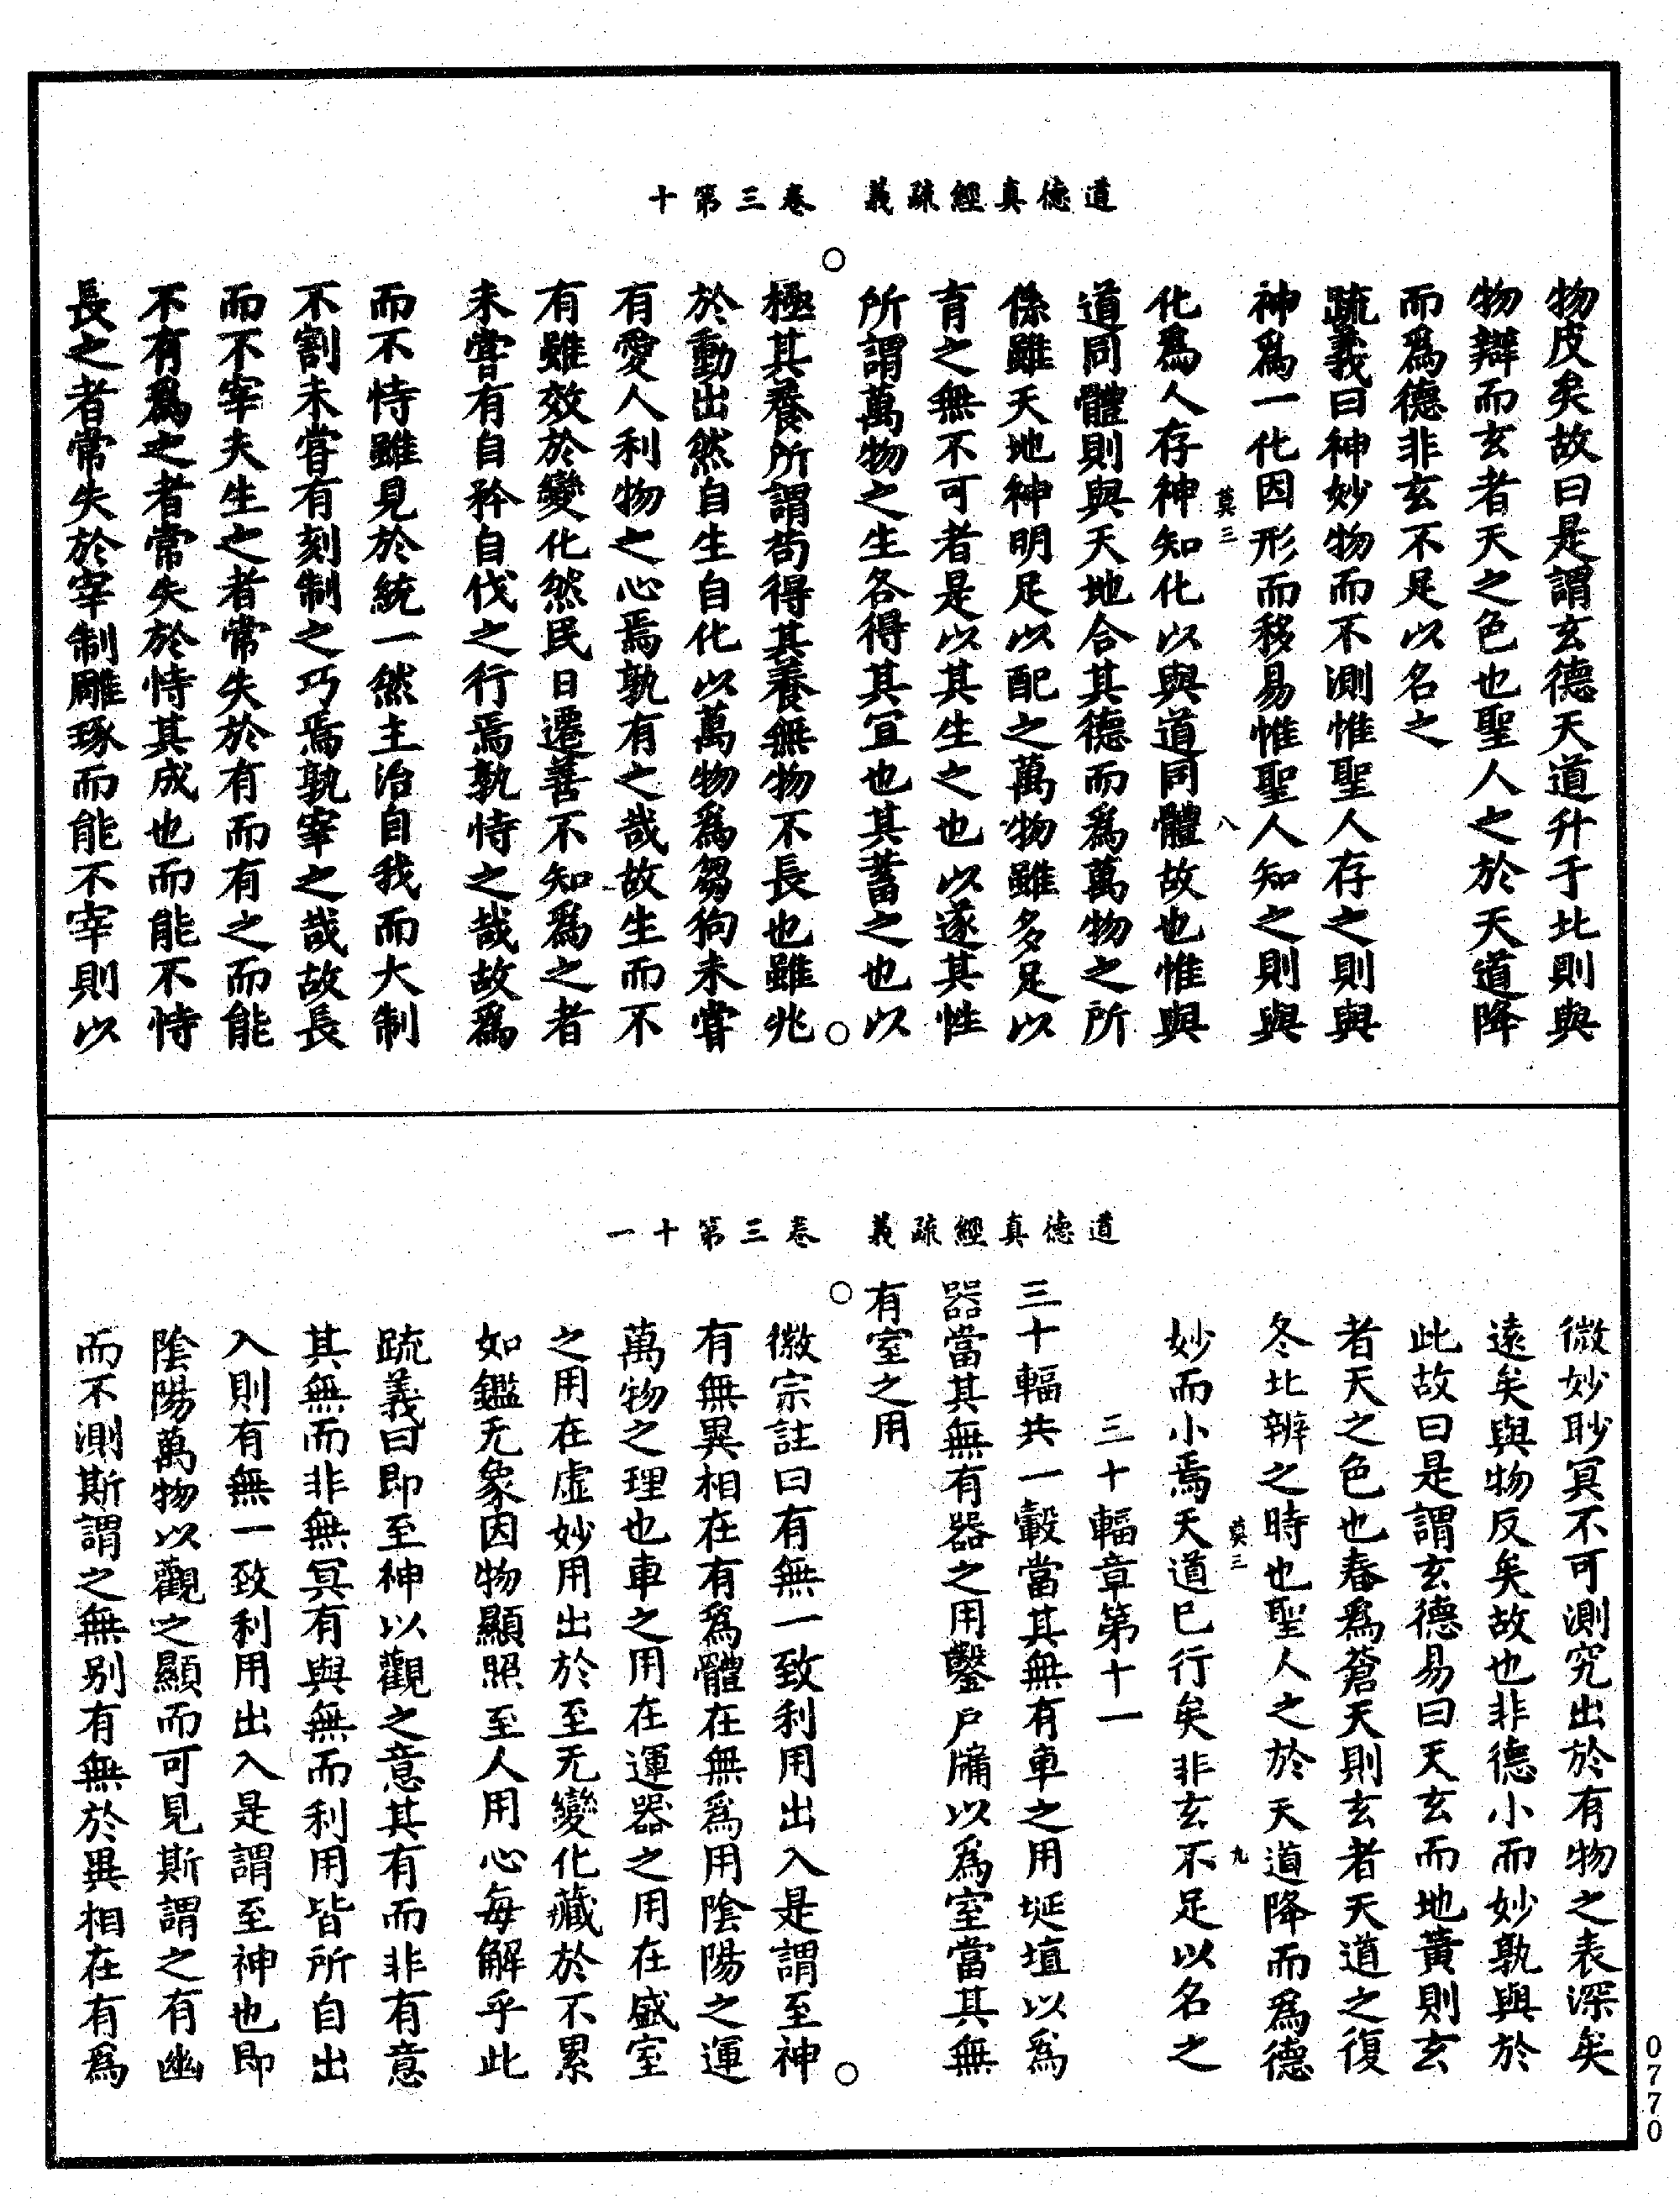 道德真經疏義　卷三第十
物皮矣故曰是謂玄德天道升于北則與
物辯而玄者天之色也聖人之於天道降
而爲德非玄不足以名之
疏義曰神妙物而不測惟聖人存之則與
神爲一化因形而移易惟聖人知之則與
莫三　八
化爲人存神知化以與道同體故也惟與
道同體則與天地合其德而爲萬物之所
係雖天地神明足以配之萬物雖多足以
育之無不可者是以其生之也以遂其性
所謂萬物之生各得其宜也其蓄之也以
極其養所謂茍得其養無物不長也雖兆
於動出然自生自化以萬物爲芻狗未嘗
有愛人利物之心焉孰有之哉故生而不
有雖效於變化然民日遷善不知爲之者
未嘗有自矜自伐之行焉孰恃之哉故爲
而不恃雖見於統一然主治自我而大制
不割未嘗有刻制之巧焉孰宰之哉故長
而不宰夫生之者常失於有而有之而能
不有爲之者常失於恃其成也而能不恃
長之者常失於宰制雕琢而能不宰則以
道德真經疏義　卷三第十一
微妙眇冥不可測究出於有物之表深矣
遠矣與物反矣故也非德小而妙孰與於
此故曰是謂玄德易曰天玄而地黃則玄
者天之色也春爲蒼天則玄者天道之復
冬北辨之時也聖人之於天道降而爲德
莫三　九
妙而小焉天道已行矣非玄不足以名之
三十輻章第十一
三十輻共一轂當其無有車之用埏埴以爲
器當其無有器之用鑿戶牖以爲室當其無
有室之用
徽宗註曰有無一致利用出入是謂至神
有無異相在有爲體在無爲用陰陽之運
萬物之理也車之用在運器之用在盛室
之用在虛妙用出於至无變化藏於不累
如鑑无象因物顯照至人用心每解乎此
疏義曰即至神以觀之意其有而非有意
其無而非無冥有與無而利用皆所自出
入則有無一致利用出入是謂至神也即
陰陽萬物以觀之顯而可見斯謂之有幽
而不測斯謂之無別有無於異相在有爲
0770